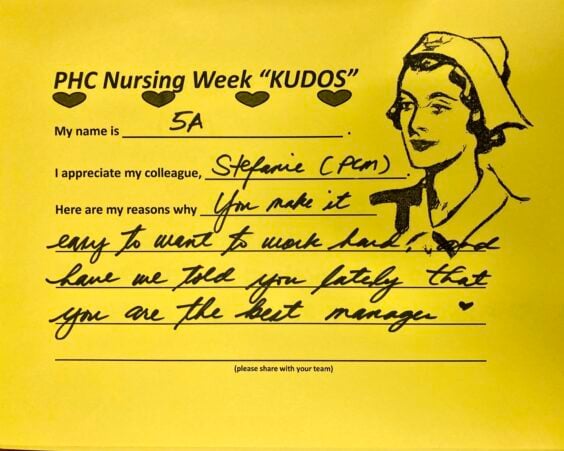 PHC Nursing Week “KUDOS”
My name is 5A.
I appreciate my colleague, Stefanie (PCM).
Here are my reasons why You make it
easy to want to work hard! and
have we told you lately that
you are the best manager ♥
(please share with your team)